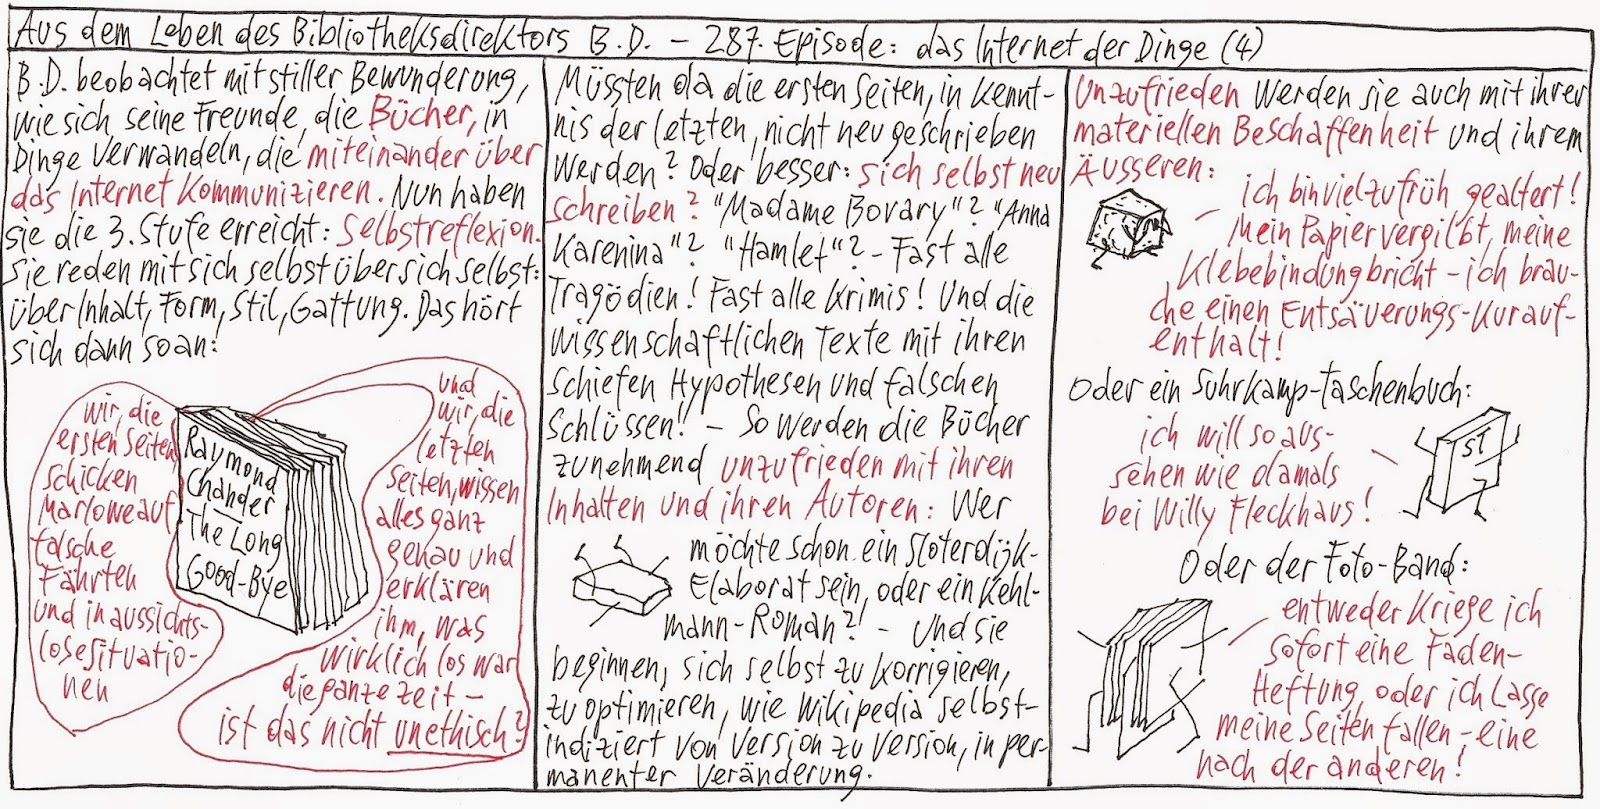 Aus dem Leben des Bibliotheksdirektors B.D. – 287. Episode: das Internet der Dinge (4)
B.D. beobachtet mit stiller Bewunderung,
wie sich seine Freunde, die Bücher, in
Dinge verwandeln, die miteinander über
das Internet kommunizieren. Nun haben
sie die 3. Stufe erreicht: Selbstreflexion.
Sie reden mit sich selbst über sich selbst:
über Inhalt, Form, Stil, Gattung. Das hört
sich dann so an:
wir, die
ersten Seiten,
schicken
Marlowe auf
falsche
Fährten
und in aussichts-
lose Situatio-
nen
Raymond
Chandler
The Long
Good-Bye
und
wir, die
letzten
Seiten, wissen
alles ganz
genau und
erklären
ihm, was
wirklich los war
die ganze Zeit –
ist das nicht unethisch?
Müssten da die ersten Seiten, in Kennt-
nis der letzten, nicht neu geschrieben
werden? Oder besser: sich selbst neu
schreiben? "Madame Bovary"? "Anna
Karenina"? "Hamlet"? – Fast alle
Tragödien! Fast alle Krimis! Und die
wissenschaftlichen Texte mit ihren
schiefen Hypothesen und falschen
Schlüssen! – So werden die Bücher
zunehmend unzufrieden mit ihren
Inhalten und ihren Autoren: Wer
möchte schon ein Sloterdijk-
Elaborat sein, oder ein Kehl-
mann-Roman?! – Und sie
beginnen, sich selbst zu korrigieren,
zu optimieren, wie Wikipedia selbst-
indiziert von Version zu Version, in per-
manenter Veränderung.
Unzufrieden werden sie auch mit ihrer
materiellen Beschaffenheit und ihrem
Äusseren:
ich bin viel zu früh gealtert!
Mein Papier vergilbt, meine
Klebebindung bricht – ich brau-
che einen Entsäuerungs-Kurauf-
enthalt!
Oder ein Suhrkamp-Taschenbuch:
ich will so aus-
sehen wie damals
bei Willy Fleckhaus!
ST
Oder der Foto-Band:
entweder kriege ich
sofort eine Faden-
Heftung, oder ich lasse
meine Seiten fallen – eine
nach der anderen!